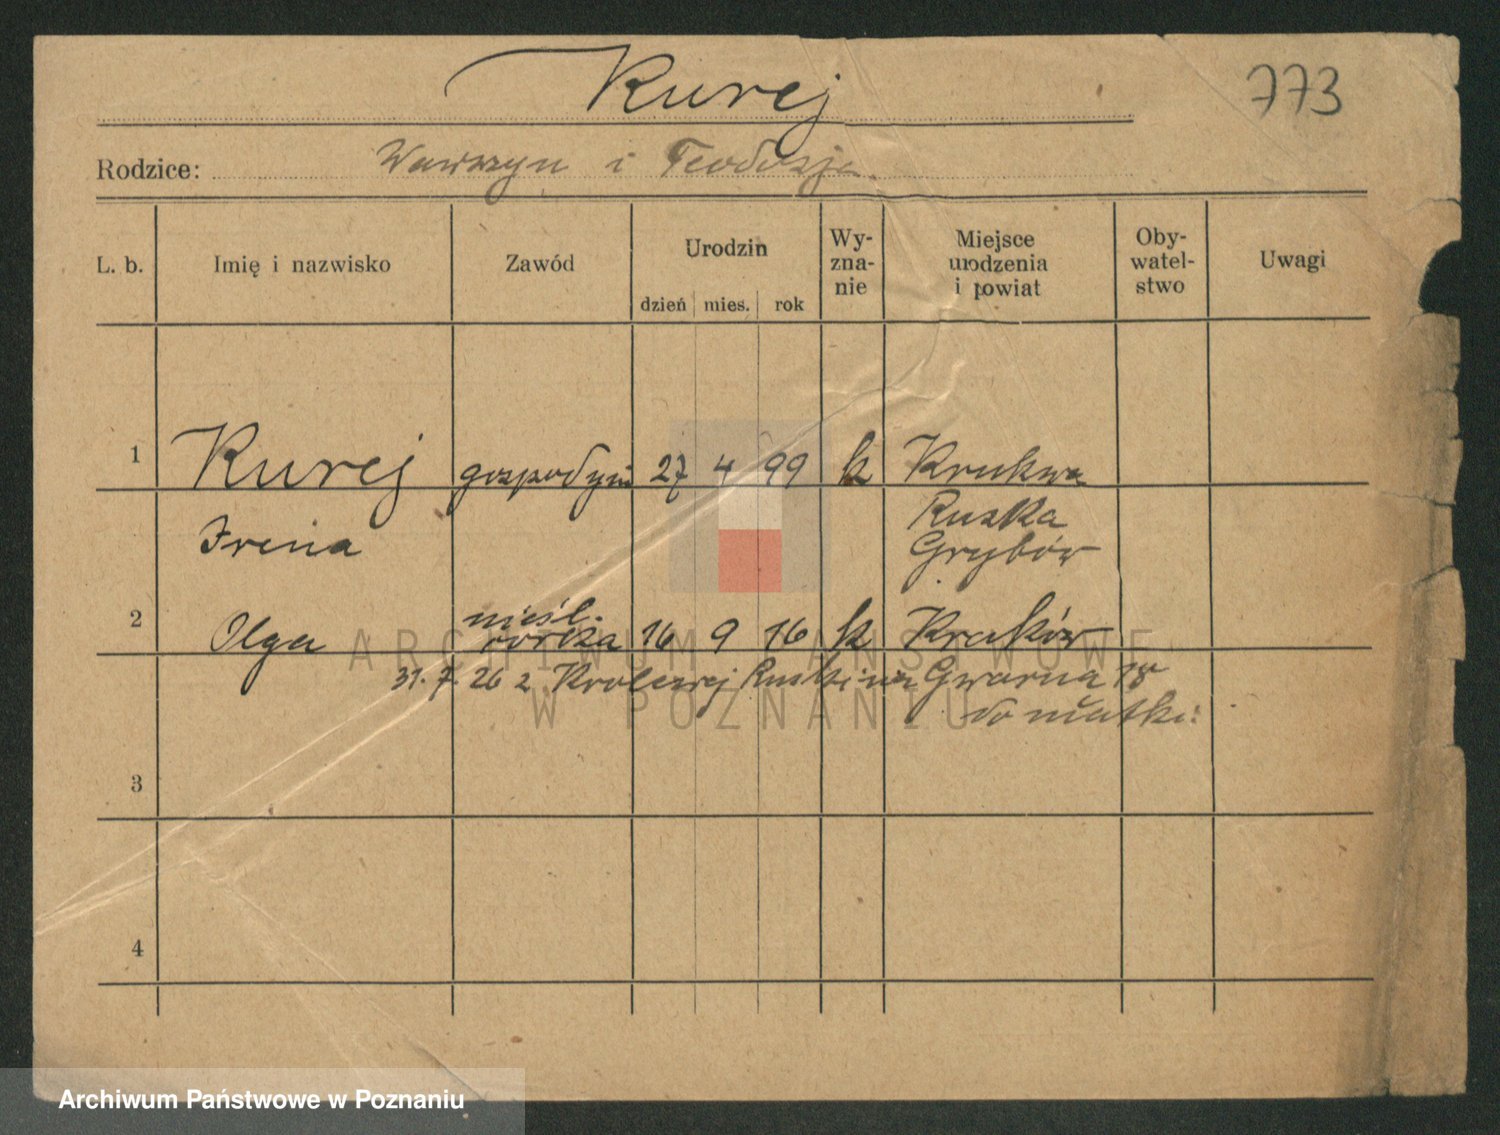 Kurej
773
Rodzice: Wawrzyn i Teodozja
L. b. Imię i nazwisko Zawód Urodzin dzień mies. rok Wy-zna-nie Miejsce urodzenia i powiat Oby-watel-stwo Uwagi
1 Kurej gospodyni 27 4 99 k Krukwa
Ruska
Irena Grybów
nieśl.
2 Olga córka 16 9 16 k Kraków
31. 7. 26 z Krolewej Ruskiej Gwarna 18
do matki
3
4
ARCHIWUM PAŃSTWOWE
W POZNANIU
Archiwum Państwowe w Poznaniu